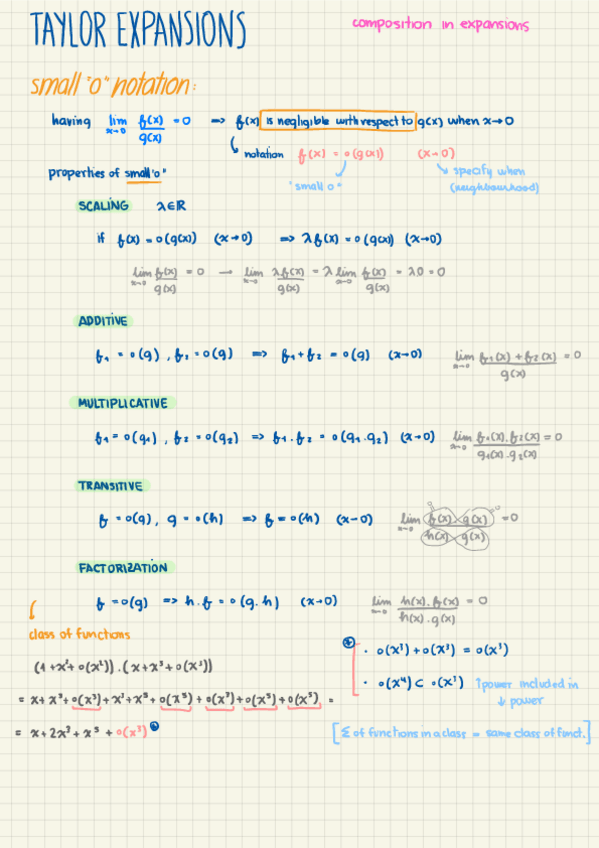 TAYLOR EXPANSIONS
composition in expansions
small "o" notation:
having lim x→0 f(x)/g(x) = 0 => f(x) is negligible with respect to g(x) when x→0
notation f(x) = o(g(x)) (x→0)
"small o"
specify when
(neighbourhood)
properties of small "o"
SCALING λ∈ℝ
if f(x) = o(g(x)) (x→0) => λf(x) = o(g(x)) (x→0)
lim x→0 f(x)/g(x) = 0 → lim x→0 λf(x)/g(x) = λ lim x→0 f(x)/g(x) = λ0 = 0
ADDITIVE
f₁ = o(g), f₂ = o(g) => f₁+f₂ = o(g) (x→0) lim x→0 f₁(x) + f₂(x)/g(x) = 0
MULTIPLICATIVE
f₁ = o(g₁), f₂ = o(g₂) => f₁·f₂ = o(g₁·g₂) (x→0) lim x→0 f₁(x)·f₂(x)/g₁(x)·g₂(x) = 0
TRANSITIVE
f = o(g), g = o(h) => f = o(h) (x→0) lim x→0 f(x)·g(x)/h(x)·g(x) = 0
FACTORIZATION
f = o(g) => h·f = o(g·h) (x→0) lim x→0 h(x)·f(x)/h(x)·g(x) = 0
class of functions
= x + 2x³ + x⁵ + o(x³)
power included in
↓ power
[Σ of functions in a class = same class of funct.]